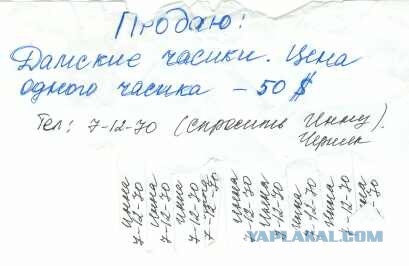 Продаю:
Дамские часики. Цена
одного часика – 50 $
Тел: 7-12-70 (спросить Инну).
Черник
Инна
7-12-70
Инна
7-12-70
Инна
7-12-70
7-12-70
Инна
7-12-70
Инна
7-12-70
Инна
7-12-70
Инна
7-12-70
-70
YAPLAKAL.COM